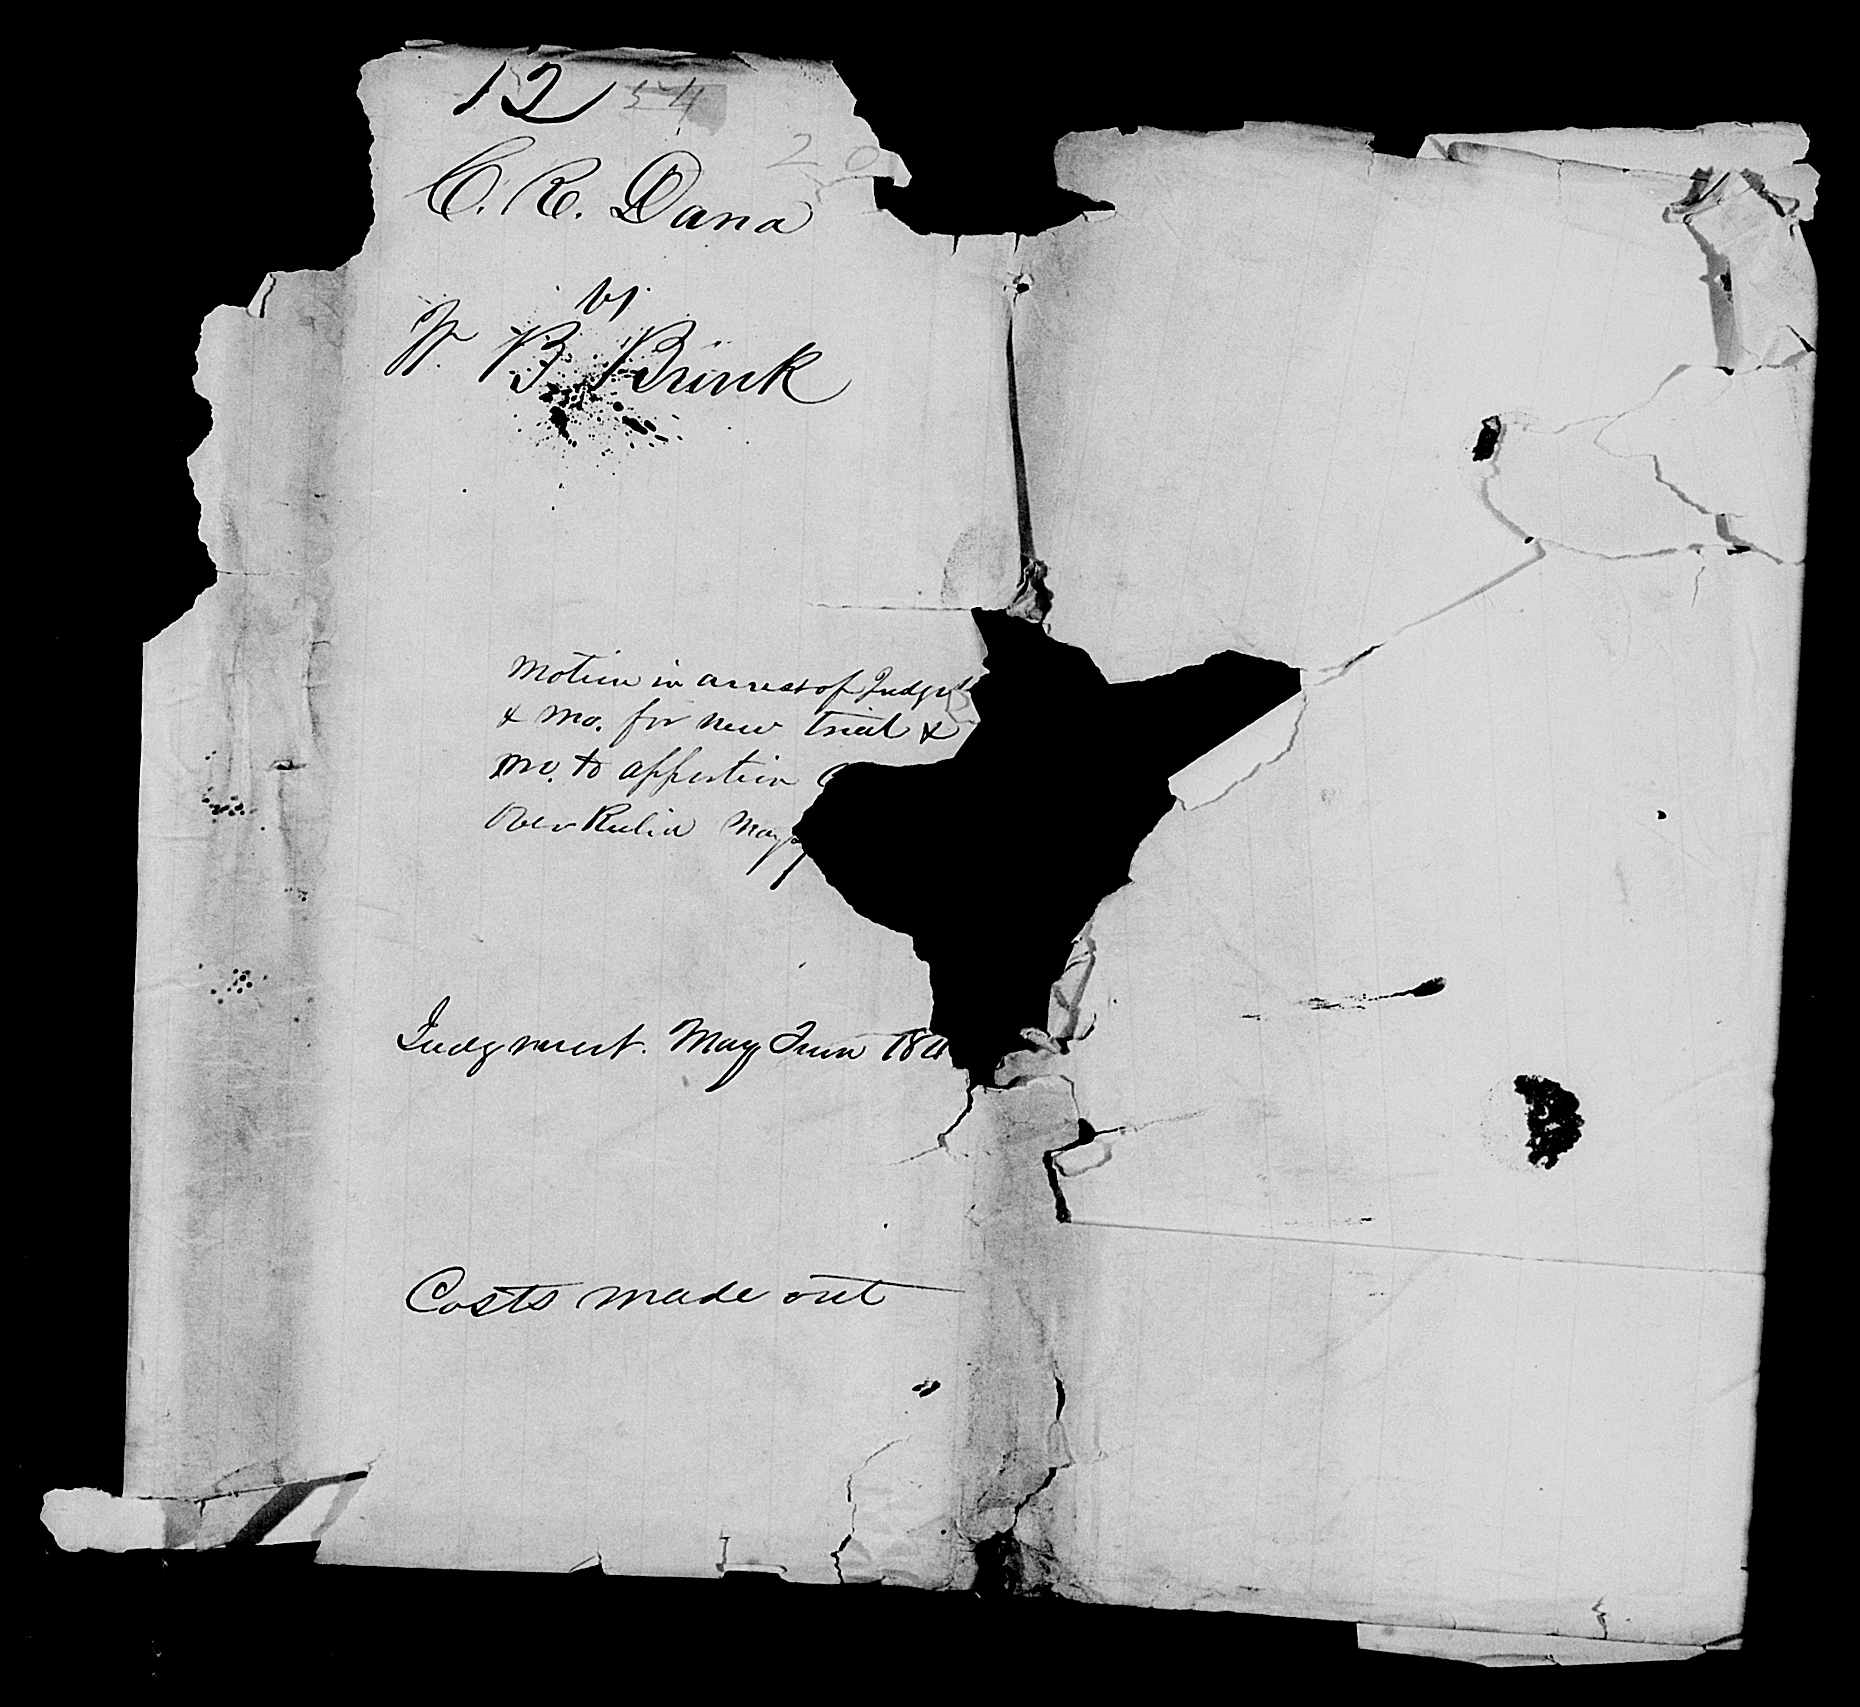 12 54
20
C. R. Dana
vs
W. B. Brink
Motion in arrest of Judgt
& mo. for new trial &
mo. to apportion
Over Ruled May
Judgment. May Term 18
Costs made out